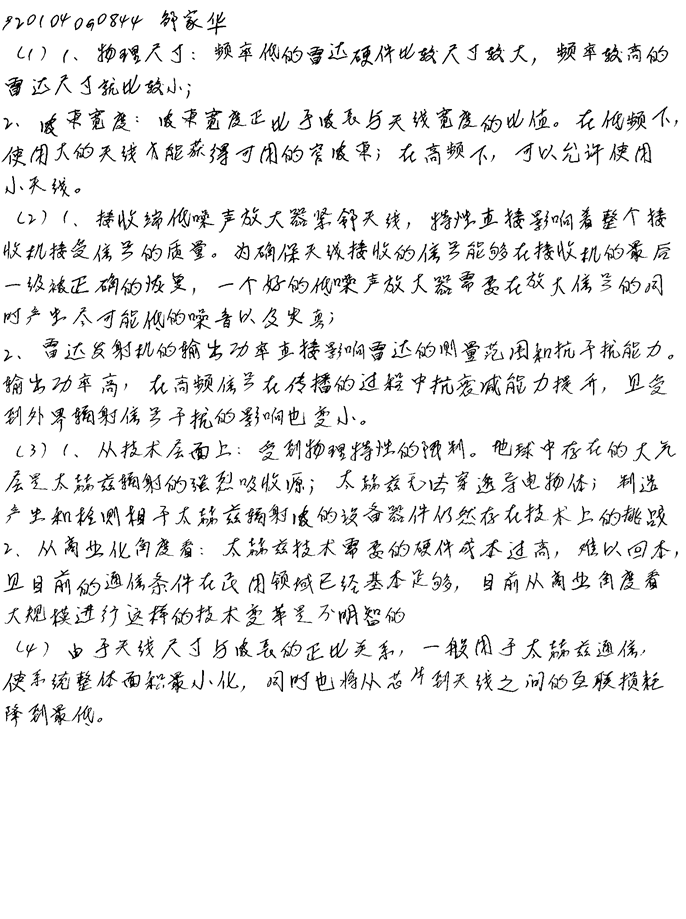 920104090844 邹家华
(1) 1、物理尺寸：频率低的雷达硬件比较尺寸较大，频率较高的
雷达尺寸就比较小；
2、波束宽度：波束宽度正比于波长与天线宽度的比值。在低频下，
使用大的天线才能获得可用的窄波束；在高频下，可以允许使用
小天线。
(2) 1、接收端低噪声放大器紧邻天线，特性直接影响着整个接
收机接受信号的质量。为确保天线接收的信号能够在接收机的最后
一级被正确的恢复，一个好的低噪声放大器需要在放大信号的同
时产生尽可能低的噪音以及失真；
2、雷达发射机的输出功率直接影响雷达的测量范围和抗干扰能力。
输出功率高，在高频信号在传播的过程中抗衰减能力提升，且受
到外界辐射信号干扰的影响也变小。
(3) 1、从技术层面上：受到物理特性的限制。地球中存在的大气
层是太赫兹辐射的强烈吸收源；太赫兹无法穿透导电物体；制造
产生和检测相干太赫兹辐射波的设备器件仍然存在技术上的挑战
2、从商业化角度看：太赫兹技术需要的硬件成本过高，难以回本，
且目前的通信条件在民用领域已经基本足够，目前从商业角度看
大规模进行这样的技术变革是不明智的
(4) 由于天线尺寸与波长的正比关系，一般用于太赫兹通信，
使系统整体面积最小化，同时也将从芯片到天线之间的互联损耗
降到最低。